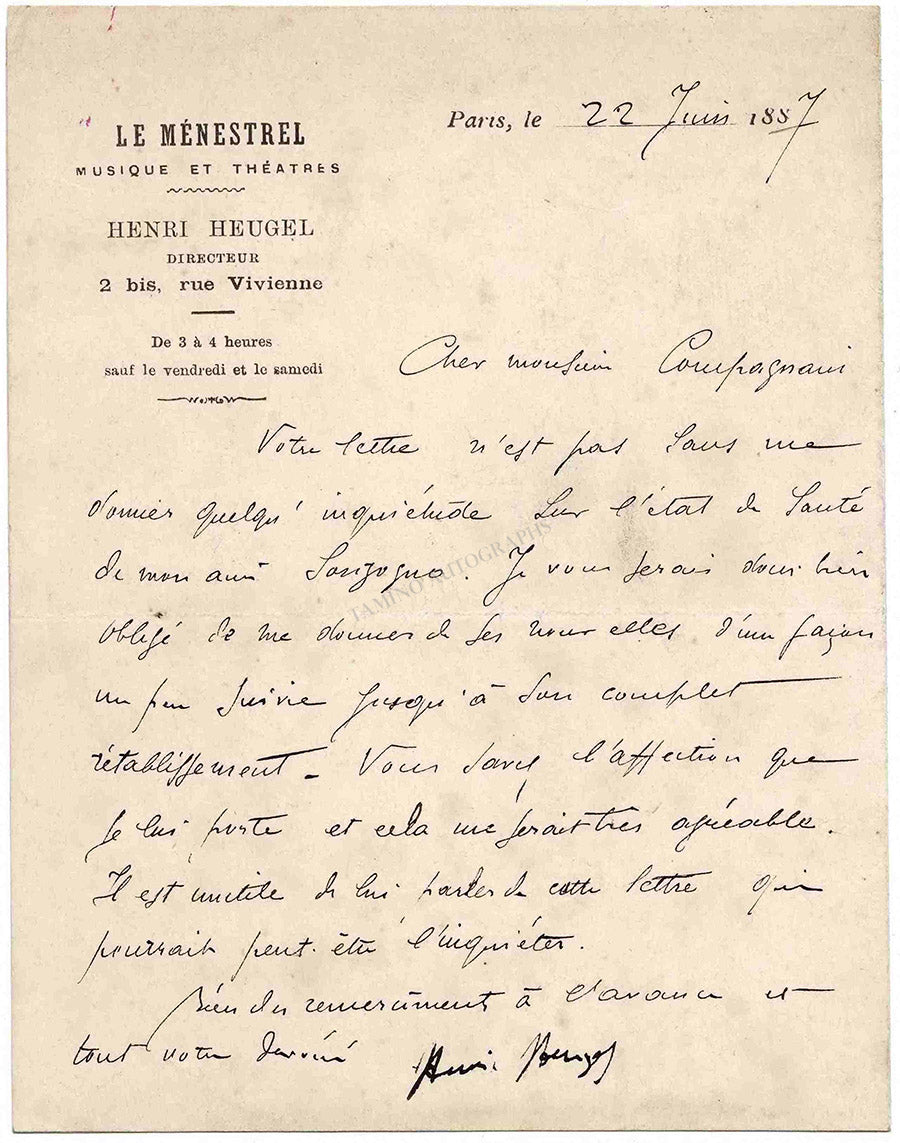 LE MÉNESTREL
MUSIQUE ET THÉATRES
HENRI HEUGEL
DIRECTEUR
2 bis, rue Vivienne
De 3 à 4 heures
sauf le vendredi et le samedi
Paris, le 22 Juin 1887
Cher monsieur
Votre lettre n'est pas sans me
donner quelqu' inquiétude sur l'état de santé
de mon ami Sonzogno. Je vous serais donc bien
obligé de me donner de ses nouvelles d'une façon
un peu suivie jusqu'à son complet
rétablissement – Vous savez l'affection que
je lui porte et cela me serait très agréable.
Il est inutile de lui parler de cette lettre qui
pourrait peut-être l'inquiéter.
Bien des remerciments à l'avance et
tout votre dévoué
Henri Heugel
TAMINO AUTOGRAPHS